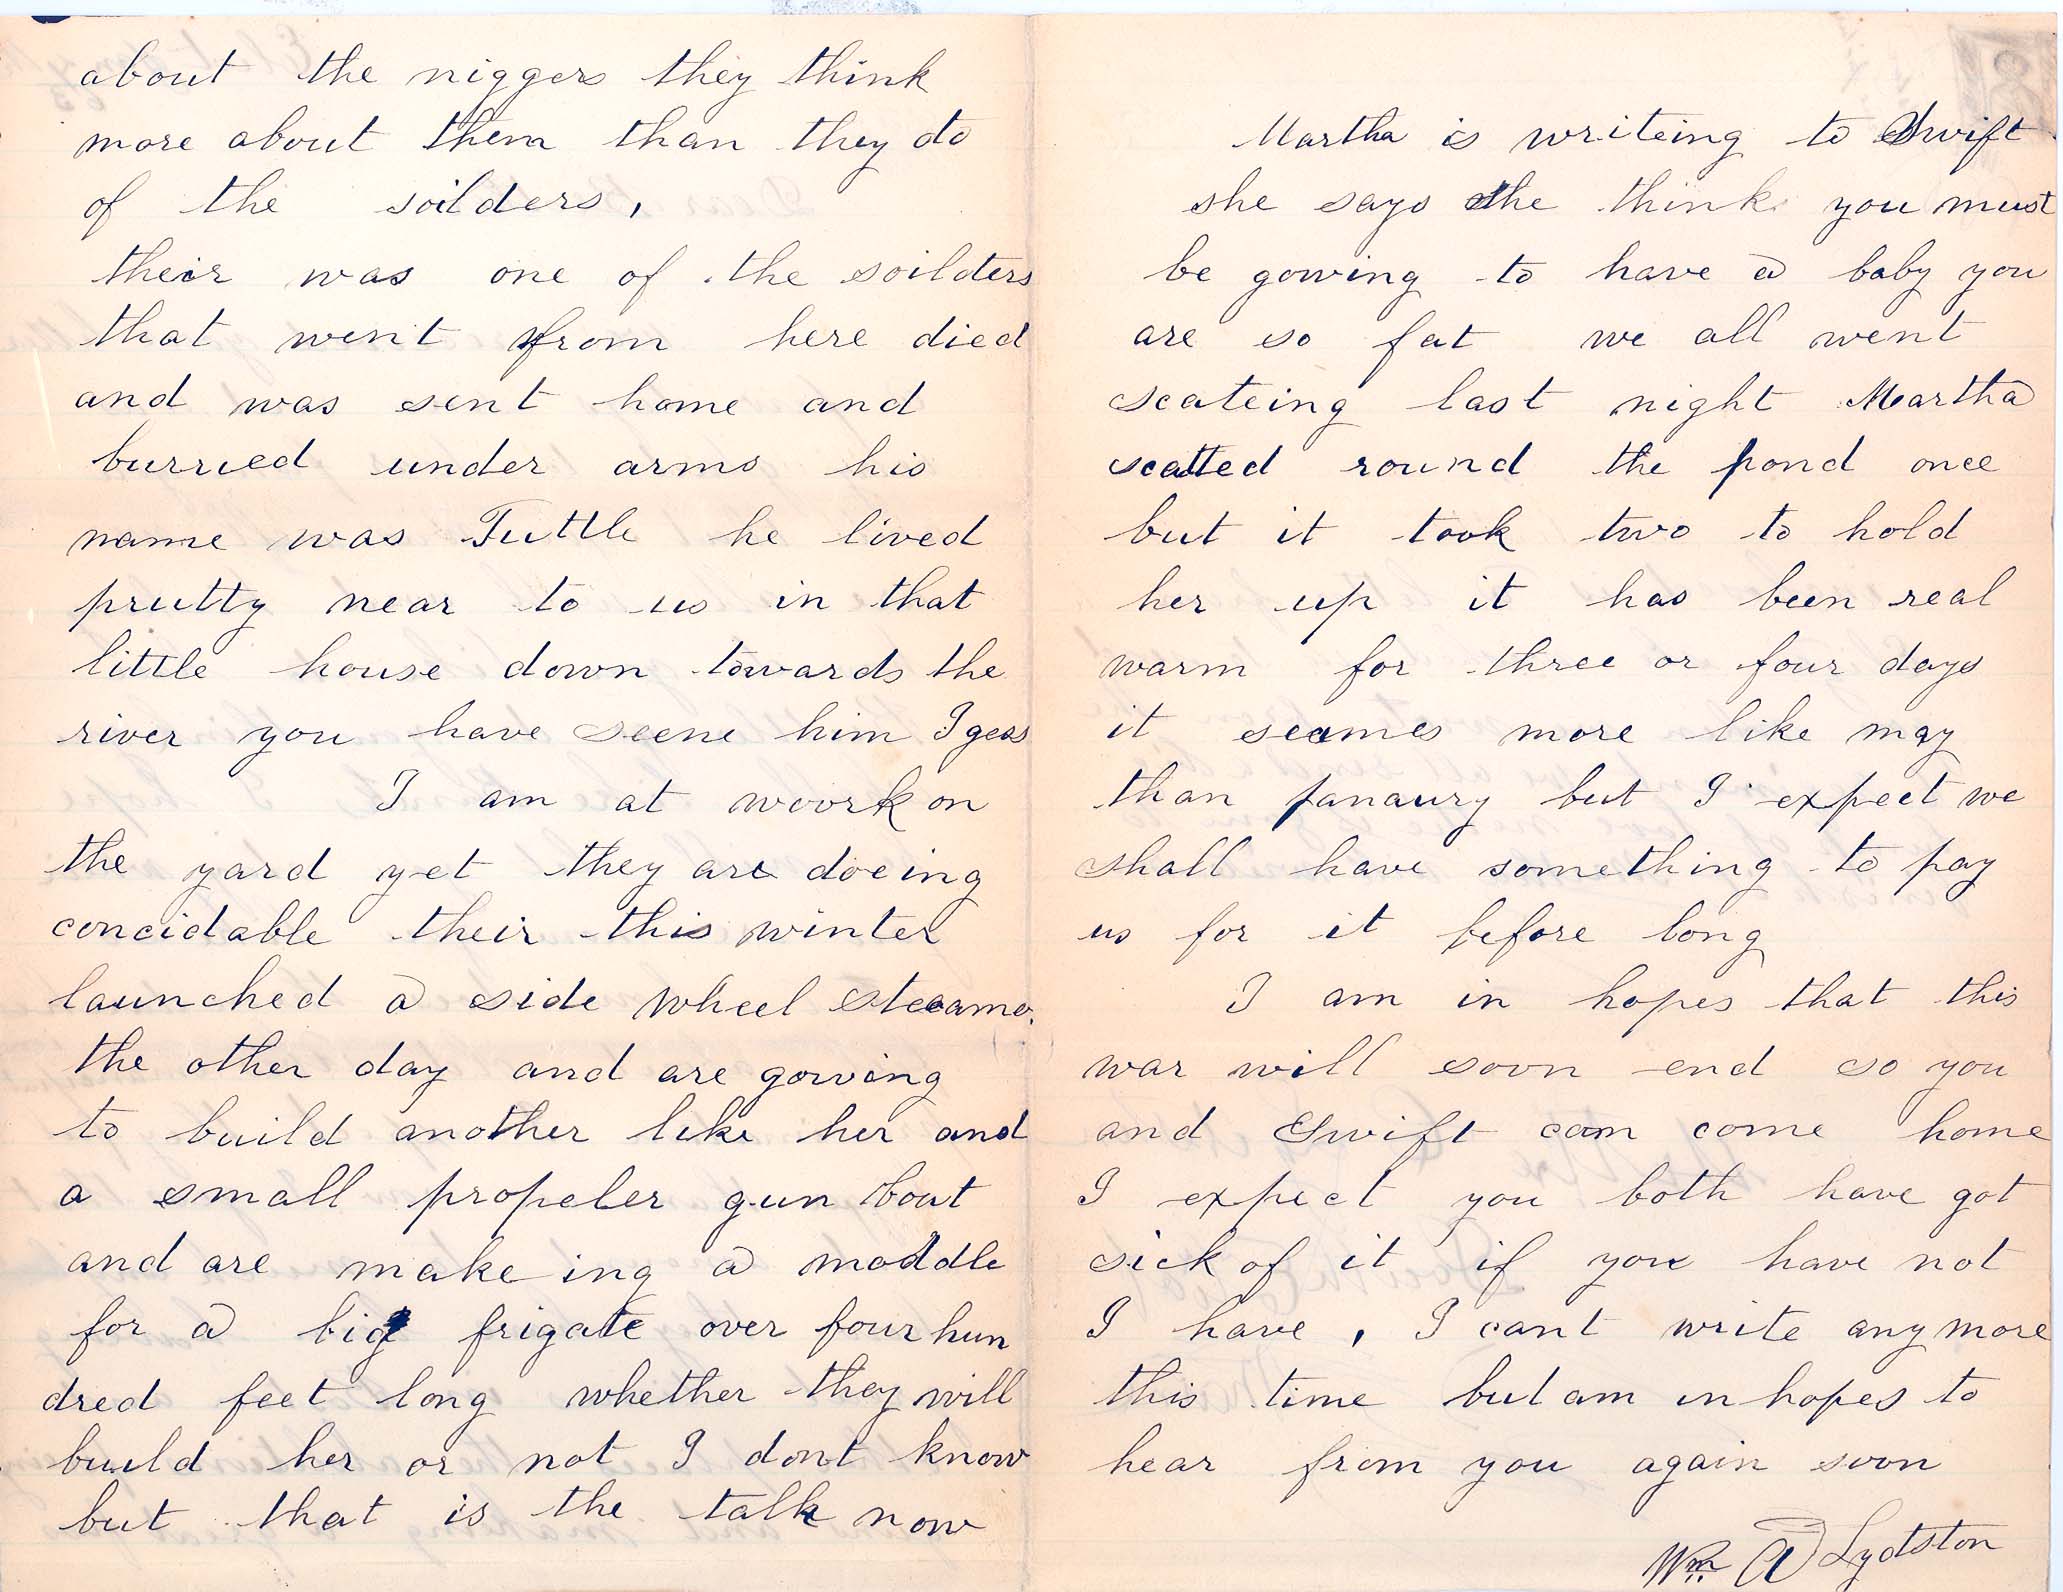 about the niggers they think
more about them than they do
of the soilders,
their was one of the soilders
that went from here died
and was sent home and
burried under arms his
name was Tuttle he lived
prutty near to us in that
little house down towards the
river you have seene him I gess
I am at woork on
the yard yet they are doeing
concidable their this winter
launched a side wheel steeamer
the other day and are gowing
to build another like her and
a small propeler gun boat
and are make ing a moddle
for a big frigate over four hun
dred feet long whether they will
build her or not I dont know
but that is the talk now
Martha is writeing to Swift
she says she think you must
be gowing to have a baby you
are so fat we all went
scateing last night Martha
scatted round the pond once
but it took two to hold
her up it has been real
warm for three or four days
it seames more like may
than janaury but I expect we
shall have something to pay
us for it before long
I am in hopes that this
war will soon end so you
and Swift can come home
I expect you both have got
sick of it if you have not
I have, I cant write any more
this time but am in hopes to
hear from you again soon
Wm A Lydston